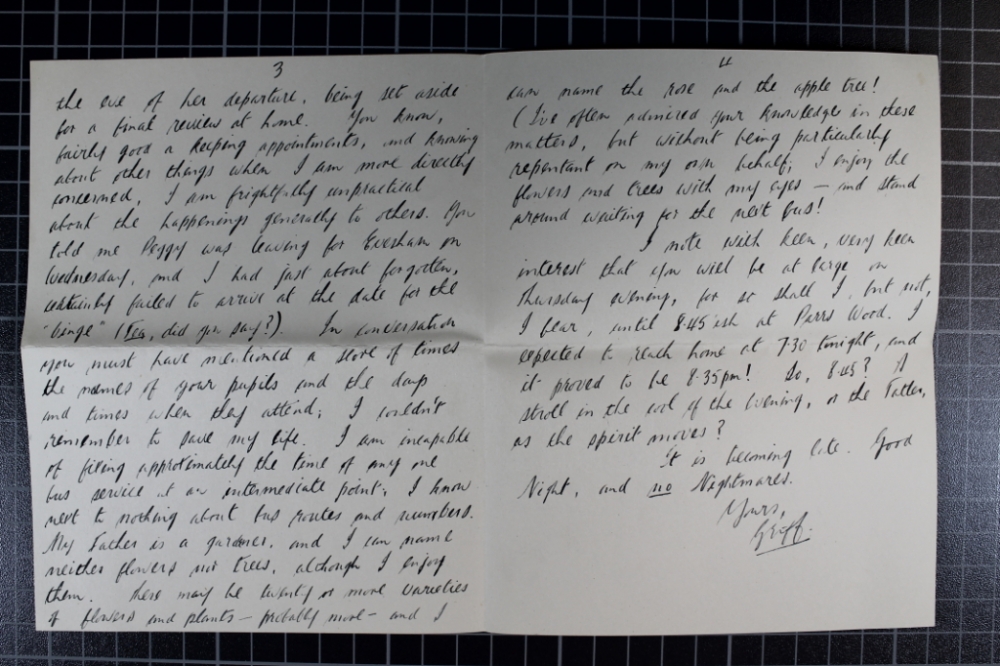 3
the eve of her departure, being set aside
for a final review at home. You know,
fairly good a keeping appointments, and knowing
about other things when I am more directly
concerned, I am frightfully unpractical
about the happenings generally to others. You
told me Peggy was leaving for Evesham on
Wednesday, and I had just about forgotten,
certainly failed to arrive at the date for the
"binge" (Tea, did you say?). In conversation
you must have mentioned a score of times
the names of your pupils and the days
and times when they attend; I couldn't
remember to save my life. I am incapable
of fixing approximately the time of any one
bus service at an intermediate point; I know
next to nothing about bus routes and numbers.
My Father is a gardener, and I can name
neither flowers nor trees, although I enjoy
them. There may be twenty or more varieties
of flowers and plants — probably more — and I
4
can name the rose and the apple tree!
(I've often admired your knowledge in these
matters, but without being particularly
repentant on my own behalf; I enjoy the
flowers and trees with my eyes — and stand
around waiting for the next bus!
I note with keen, very keen
interest that you will be at large on
Thursday evening, for so shall I, but not,
I fear, until 8.45'ish at Parrs Wood. I
expected to reach home at 7.30 tonight, and
it proved to be 8.35pm! So, 8.45? A
stroll in the cool of the Evening, or the Tatler,
as the spirit moves?
It is becoming late. Good
Night, and no Nightmares.
Yours,
Geoff.